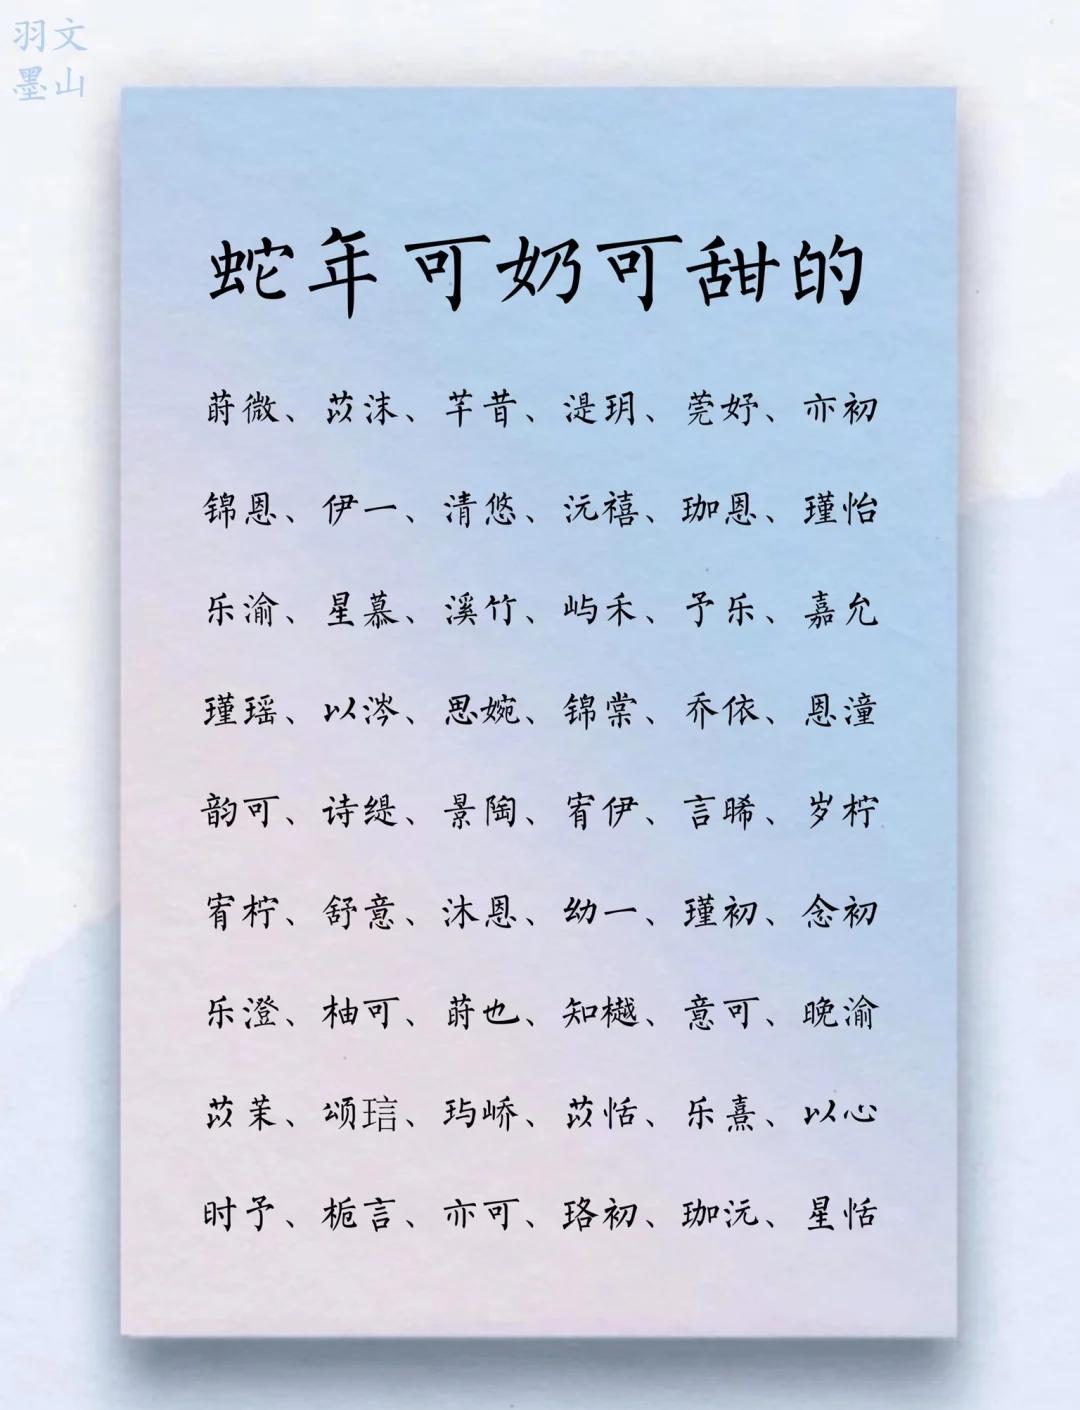 羽文
墨山
蛇年可奶可甜的
莳微、苡沫、芊昔、湜玥、莞妤、亦初
锦恩、伊一、清悠、沅禧、珈恩、瑾怡
乐渝、星慕、溪竹、屿禾、予乐、嘉允
瑾瑶、以涔、思婉、锦棠、乔依、恩潼
韵可、诗缇、景陶、宥伊、言晞、岁柠
宥柠、舒意、沐恩、幼一、瑾初、念初
乐澄、柚可、莳也、知樾、意可、晚渝
苡茉、颂琂、玙峤、苡恬、乐熹、以心
时予、栀言、亦可、珞初、珈沅、星恬